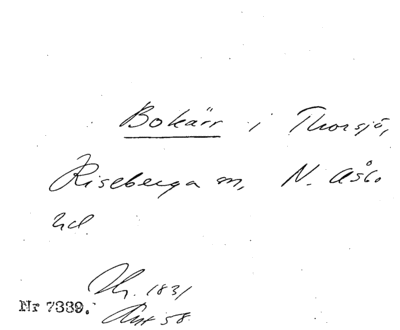 Bokärr i Thorsjö,
Riseberga sn, N. Åsbo
hd.
1831
Nr 7339. Ant 58